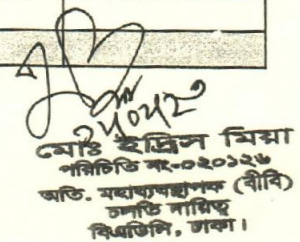 মোঃ ইদ্রিস মিয়া
পরিচিতি নং-০২০১২৬
অতি. মহাব্যবস্থাপক (বীবি)
চলতি দায়িত্ব
বিএডিসি, ঢাকা।